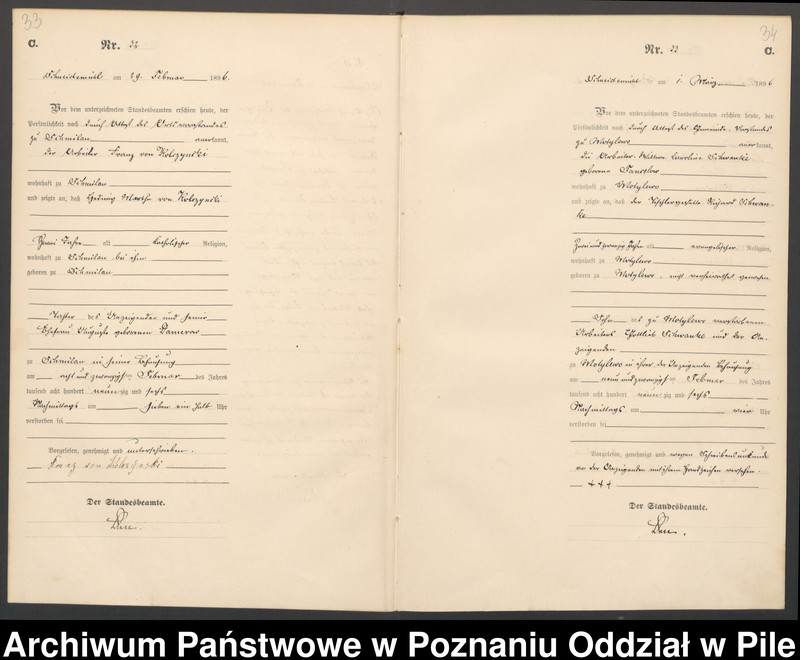 33
C.
Nr. 32
Schneidemühl am 29. Februar 1896.
Vor dem unterzeichneten Standesbeamten erschien heute, der
Persönlichkeit nach durch Attest des Ortsvorstandes
zu Schmilau anerkannt,
der Arbeiter Franz von Kolozynski
wohnhaft zu Schmilau
und zeigte an, daß Hedwig Martha von Kolozynski
zwei Jahre alt katholischer Religion,
wohnhaft zu Schmilau bei ihm
geboren zu Schmilau
Tochter des Anzeigenden und seiner
Ehefrau Auguste geborenen Pamerow
zu Schmilau in seiner Behausung
am acht und zwanzigsten Februar des Jahres
tausend acht hundert neunzig und sechs
Nachmittags um sieben ein halb Uhr
verstorben sei
Vorgelesen, genehmigt und unterschrieben.
Franz von
Der Standesbeamte.
34
Nr. 33
C.
Schneidemühl am 1. März 1896
Vor dem unterzeichneten Standesbeamten erschien heute, der
Persönlichkeit nach durch Attest des Gemeinde Vorstandes
zu Motylewo anerkannt,
die Arbeiter Wittwe Caroline Schwanke
geborene
wohnhaft zu Motylewo
und zeigte an, daß der Tischlergeselle Richard Schwan-
ke
zwei und zwanzig Jahre alt evangelischer Religion,
wohnhaft zu Motylewo
geboren zu Motylewo, nicht verheirathet gewesen
Sohn des zu Motylewo verstorbenen
Arbeiters Gottlieb Schwanke und der An-
zeigenden
zu Motylewo in ihrer der Anzeigenden Behausung
am neun und zwanzigsten Februar des Jahres
tausend acht hundert neunzig und sechs
Nachmittags um vier Uhr
verstorben sei
Vorgelesen, genehmigt und wegen Schreibensunkunde
von der Anzeigenden mit ihrem Handzeichen versehen.
+++
Der Standesbeamte.
Archiwum Państwowe w Poznaniu Oddział w Pile